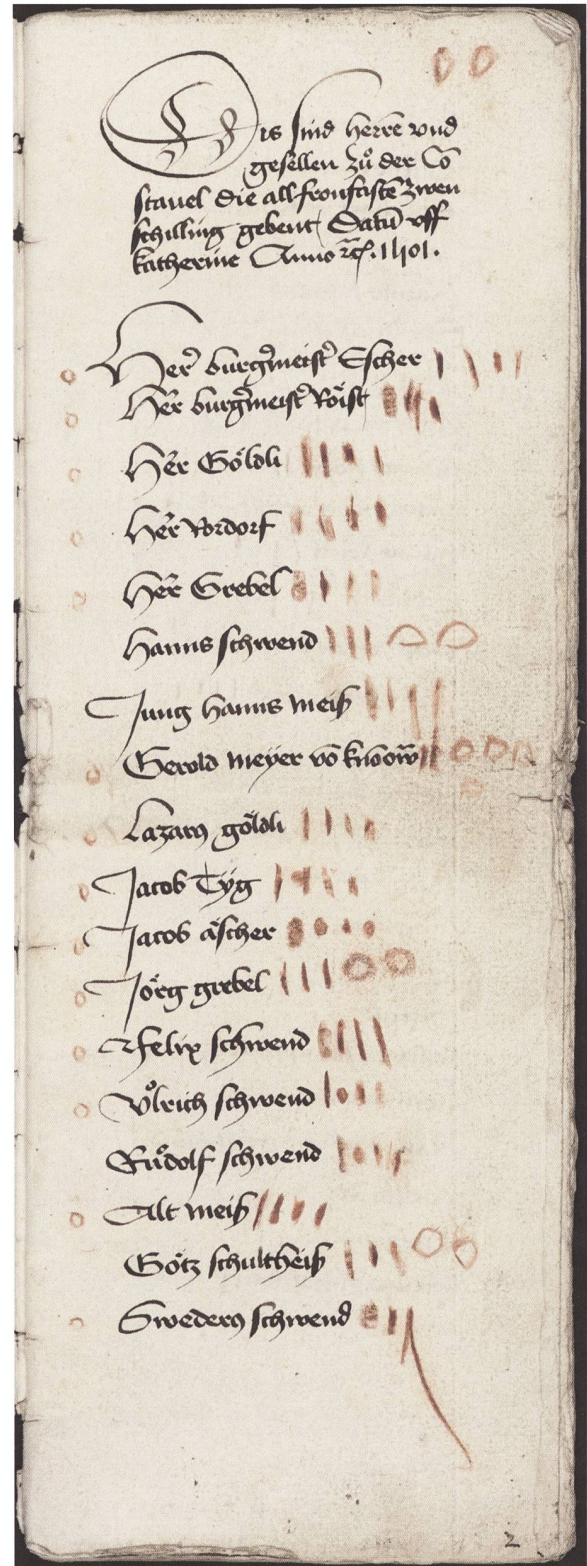 Dis sind herrē vnd
gesellen zů der Cō
stauel die all fronfastē zwen
schilling gebent Datū vff
katherine Anno
Her burgermeister Escher
Her burgermeister Röist
Her Göldli
Her Rordorf
Her Grebel
Hanns schwend
Jung hanns meiß
Gerold meyer vō knonow
Lazarus göldli
Jacob Tyg
Jacob äscher
Jörg grebel
Felix schwend
Vͦlrich schwend
Růdolf schwend
Alt meiß
Götz schultheiß
Swederus schwend
2